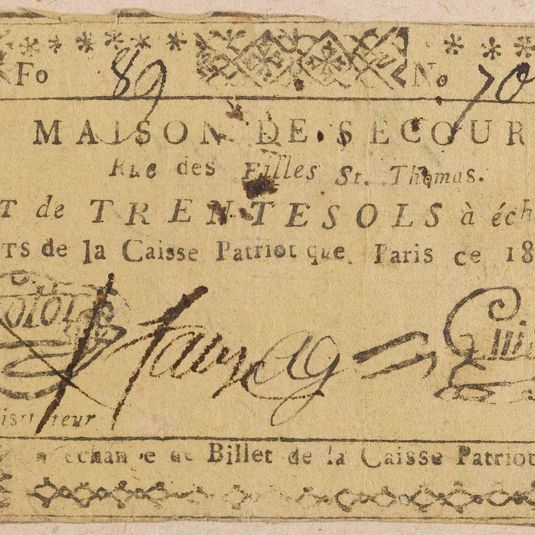 Fo 89 No 70
MAISON DE SECOUR
Rue des Filles St. Thomas.
T de TRENTE SOLS à éch
TS de la Caisse Patriot que Paris ce 18
échan e de Billet de la Caisse Patriot